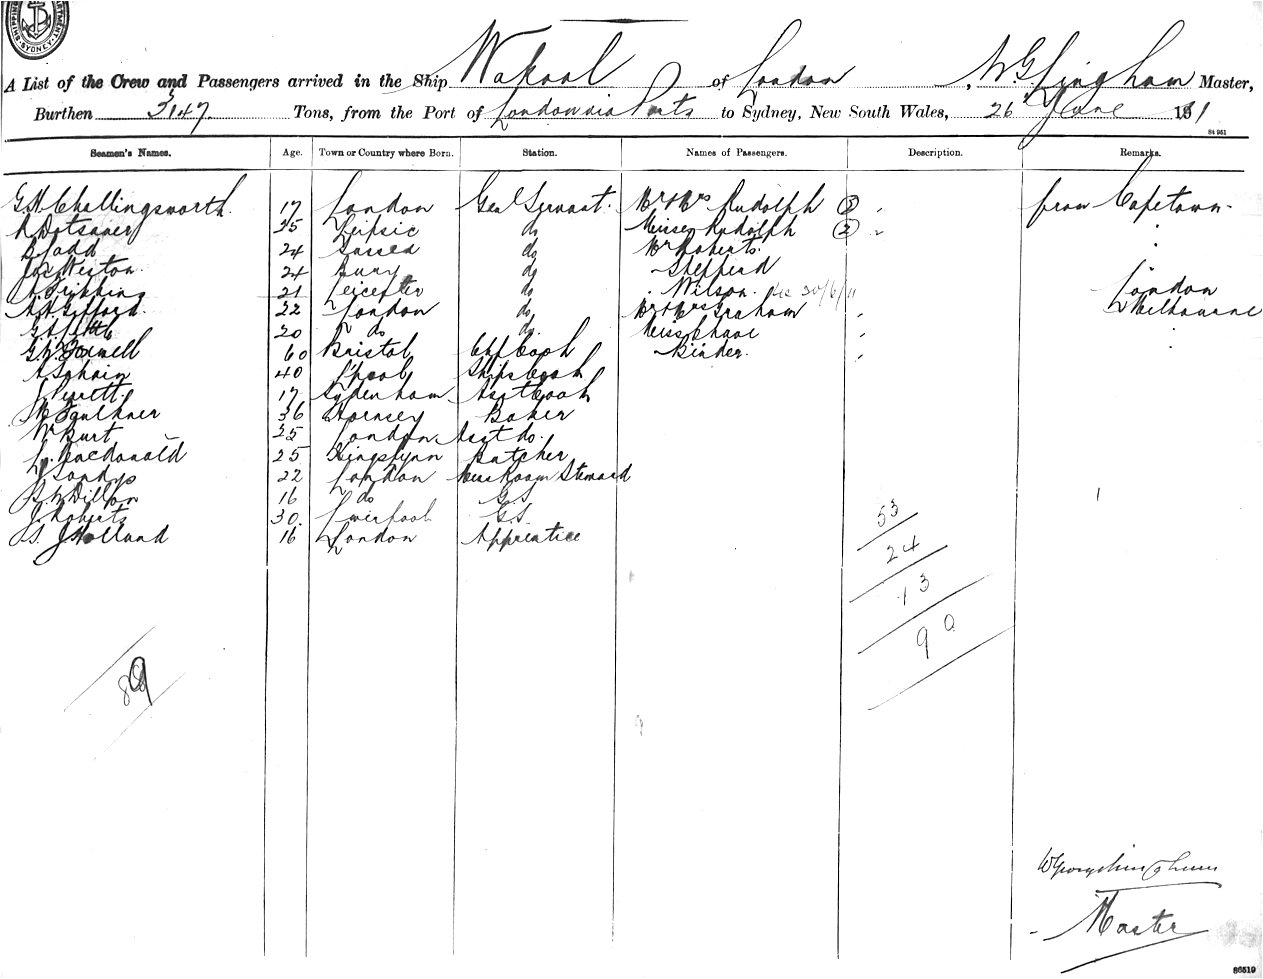 SHIPPING DEPARTMENT. SYDNEY.
A List of the Crew and Passengers arrived in the Ship Wakool of London, W G Lingham Master,
Burthen 3147 Tons, from the Port of London via Ports to Sydney, New South Wales, 26 June 1911
84 951
Seamen's Names. Age. Town or Country where Born. Station. Names of Passengers. Description. Remarks.
G.H. Challingsworth. 17 London Genl Servant. Mr & Mrs Rudolph (3) from Capetown
35 Leipsic do Misses Rudolph (2)
24 Sussex do Mr Roberts.
Jas Weston. 24 Bury do Sheppard
21 Leicester do Wilson. 30/6/11 London
A.H. Gifford. 22 London do Mr & Mrs Graham & Melbourne
20 do do. Miss Chave
60 Bristol Chf Cook Binder.
40 L'pool Ships Cook
17 Sydenham Asst Cook
W Faulkner 36 Hornsey Baker
W Burt 25 London Asst do.
L. Macdonald 25 Kings Lynn Butcher
J Sandys 22 London Mess Room Steward
Dillon 16 do G.S.
J. Roberts 30. Liverpool G.S.
S. J Holland 16 London Apprentice
53
24
13
90
89
Master
86519